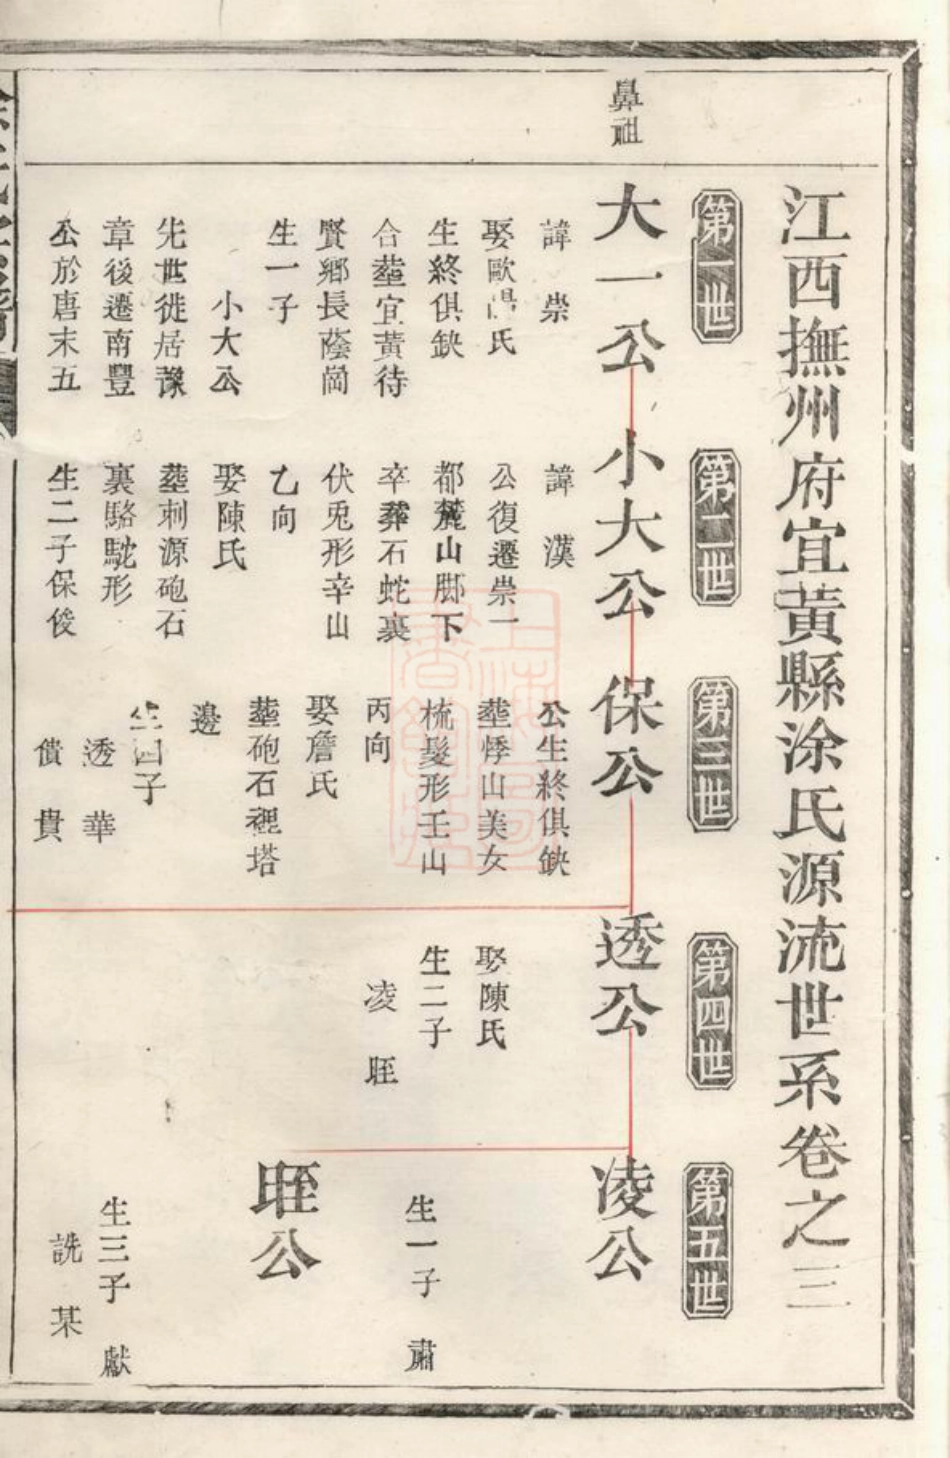 江西撫州府宜黃縣涂氏源流世系卷之三
鼻祖
第一世
大一公
諱崇
娶歐陽氏
生終俱缺
合塟宜黃待
賢鄉長蔭崗
生一子
小大公
先世徙居豫
章後遷南豐
公於唐末五
第二世
小大公
諱漢
公復遷崇一
都麓山脚下
卒葬石蛇裏
伏兎形辛山
乙向
娶陳氏
塟刺源砲石
裏駱駝形
生二子保俊
第三世
保公
公生終俱缺
塟悸山美女
梳髮形壬山
丙向
娶詹氏
塟砲石裡塔
邊
生四子
透華
僨貴
第四世
透公
娶陳氏
生二子
凌
第五世
凌公
生一子肅
公
生三子獻
詵某